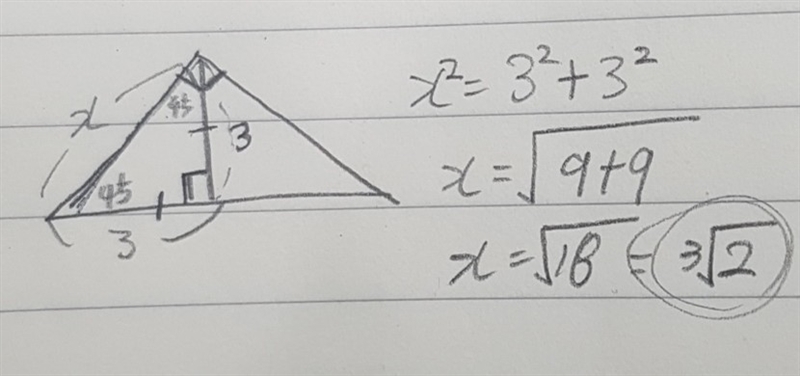 x
45
3
45
3
x²=3²+3²
x=√9+9
x=√18=3√2